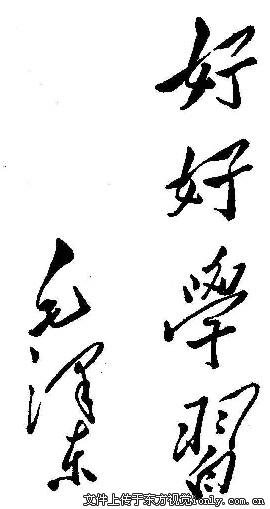 好好學習
毛泽东
文件上传于东方视觉ionly.com.cn